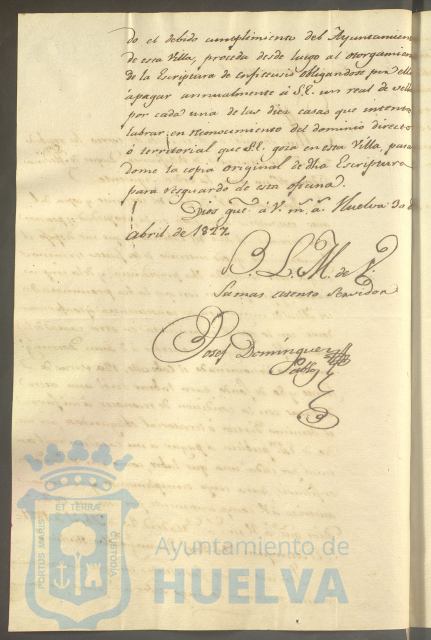 do el debido cumplimiento del Ayuntamien
de esta Villa, proceda desde luego al otorgamien
de la Escriptura de enfiteusis obligandose por ella
a pagar annualmente á S.E. un real de vello
por cada una de las diez casas que intenta
labrar, en reconocimiento del dominio directo
ó territorial que S.E. goza en esta Villa, pasan
dome la copia original de dha Escriptura
para resguardo de esta oficina.
Dios gue á V. ms. as. Huelva 30 d
Abril de 1827.
B. L. M. de V.
Su mas atento Servidor
Josef Dominguez
PORTUS MARIS
ET TERRAE
CUSTODIA
Ayuntamiento de
HUELVA